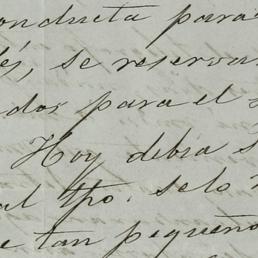 conducta para
és, se reserva
dos para el
Hoy debia
al tpo. selo
e tan pequeño